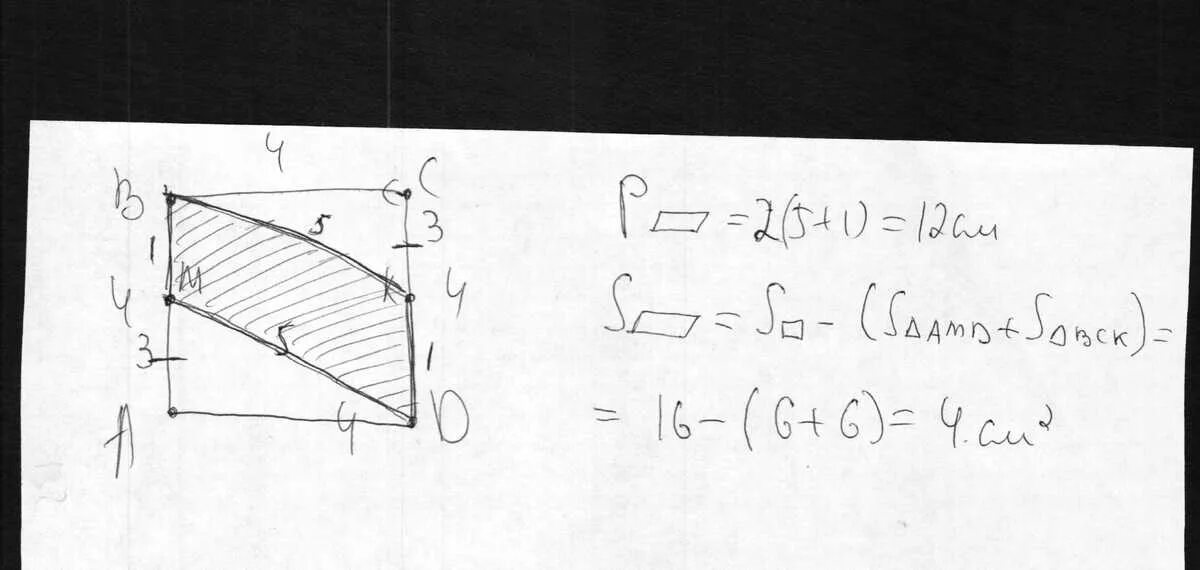 4
B C
5
3
1
M K
4 4
5
3 1
A 4 D
P▱ = 2(5+1) = 12 см
S▱ = S□ - (S△AMD + S△BCK) =
= 16 - (6+6) = 4 см²